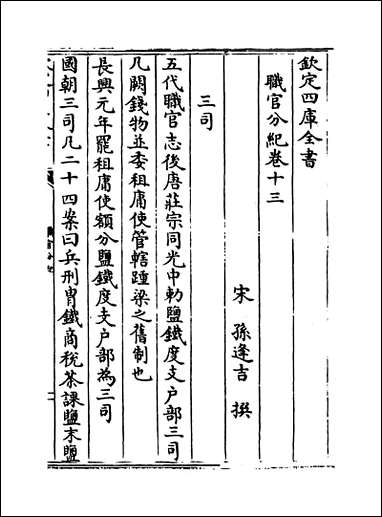 欽定四庫全書
職官分紀卷十三
宋 孫逢吉 撰
三司
五代職官志後唐莊宗同光中勅鹽鐵度支户部三司
凡闕錢物並委租庸使管轄踵梁之舊制也
長興元年罷租庸使額分鹽鐵度支户部為三司
國朝三司凡二十四案曰兵刑胄鐵商稅茶課鹽末鹽